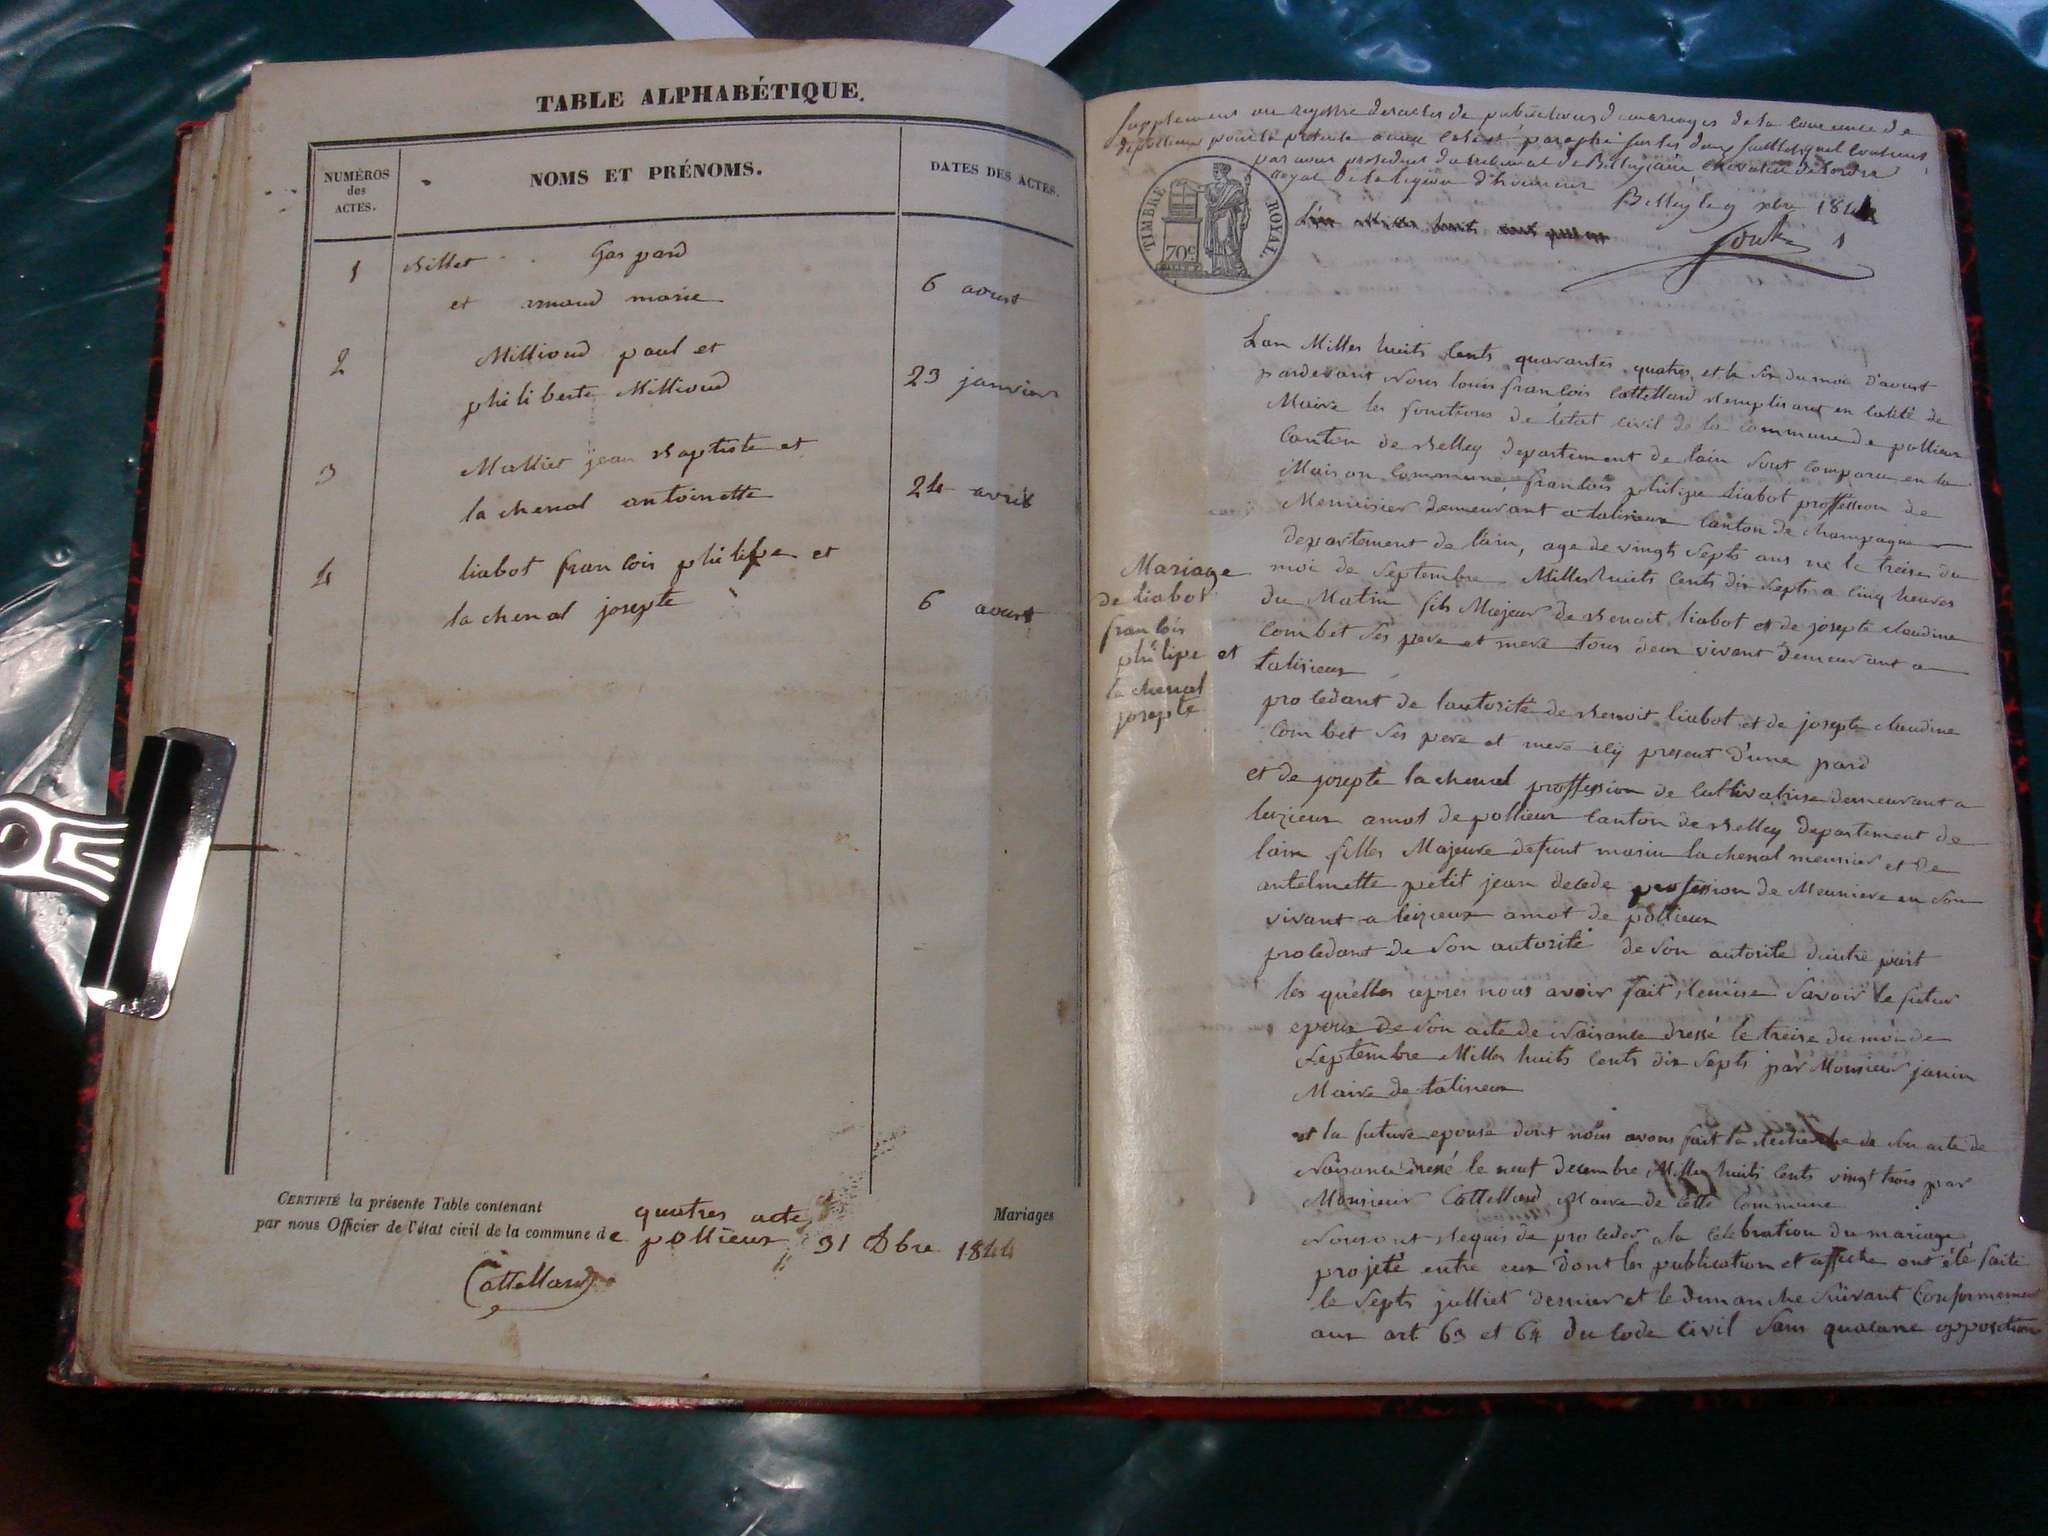 TABLE ALPHABÉTIQUE.
NUMÉROS
des
ACTES.
NOMS ET PRÉNOMS.
DATES DES ACTES.
1 Billet Gaspard
et maria 6 aoust
2 Millioud paul et
philiberte Millioud 23 janvier
3 Mallier jean Baptiste et
la chenal antoinette 24 avril
4 liabot francois philipe et
la chenal josepte 6 aoust
CERTIFIÉ la présente Table contenant quatres acte Mariages
par nous Officier de l'état civil de la commune de pollieux 31 Dbre 1844
Cattelland
Supplement au registre des actes de publications de mariages de la commune de
de pollieux pour la presente année paraphé sur les deux feuillets quil contient
par nous president du tribunal de Belley chevalier de lordre
royal de la legion d'honneur
Belley le 9 xbre 184
TIMBRE ROYAL.
70c
1
Lan Milles huits Cents quarantes quatres et le six du moi d'aoust
pardevant Nous louis francois Cattelland Remplisant en calité de
Maire les fonctions de l'état civil de la commune de pollieux
Canton de Belley departement de lain Sont comparu en la
Maison Commune, francois philipe liabot proffession de
Menuisier demeurant a talisieux canton de champagne
departement de lain, age de vingt Septs ans ne le treise du
moi de Septembre Milles huits Cents dix Septs a cinq heures
du Matin fils Majeur de Benoit liabot et de josepte claudine
Combet Ses pere et mere tous deux vivant demeurant a
talisieux
procedant de lautorité de Benoit liabot et de josepte claudine
Combet Ses pere et mere icy present d'une pard
et de josepte la chenal proffession de cultivatrise demeurant a
leizieux amot de pollieux Canton de Belley departement de
lain filles Majeure defunt marin la chenal meunier et de
antelmette petit jean decede profession de Meuniere en Son
vivant a leizieux amot de pollieux
procedant de Son autorité de Son autorité dautre part
les quelles apres nous avoir fait Remise Savoir le futur
epoux de Son acte de Naisance dressé le treise du moi de
Septembre Milles huits Cents dix Septs par Monsieur janin
Maire de talisieux
et la future epouse dont nous avons fait la Recherche de Son acte de
Naisance dressé le neuf decembre Milles huits Cents vingt trois par
Monsieur Cattelland Maire de cette Commune
Nous ont Requis de proceder a la celebration du mariage
projeté entre eux dont les publication et affiche ont été faite
le Septs julliet dernier et le dimanche Suivant Conformement
aux art 63 et 64 du code civil Sans quacune opposition
Mariage
de liabot
francois
philipe et
la chenal
josepte